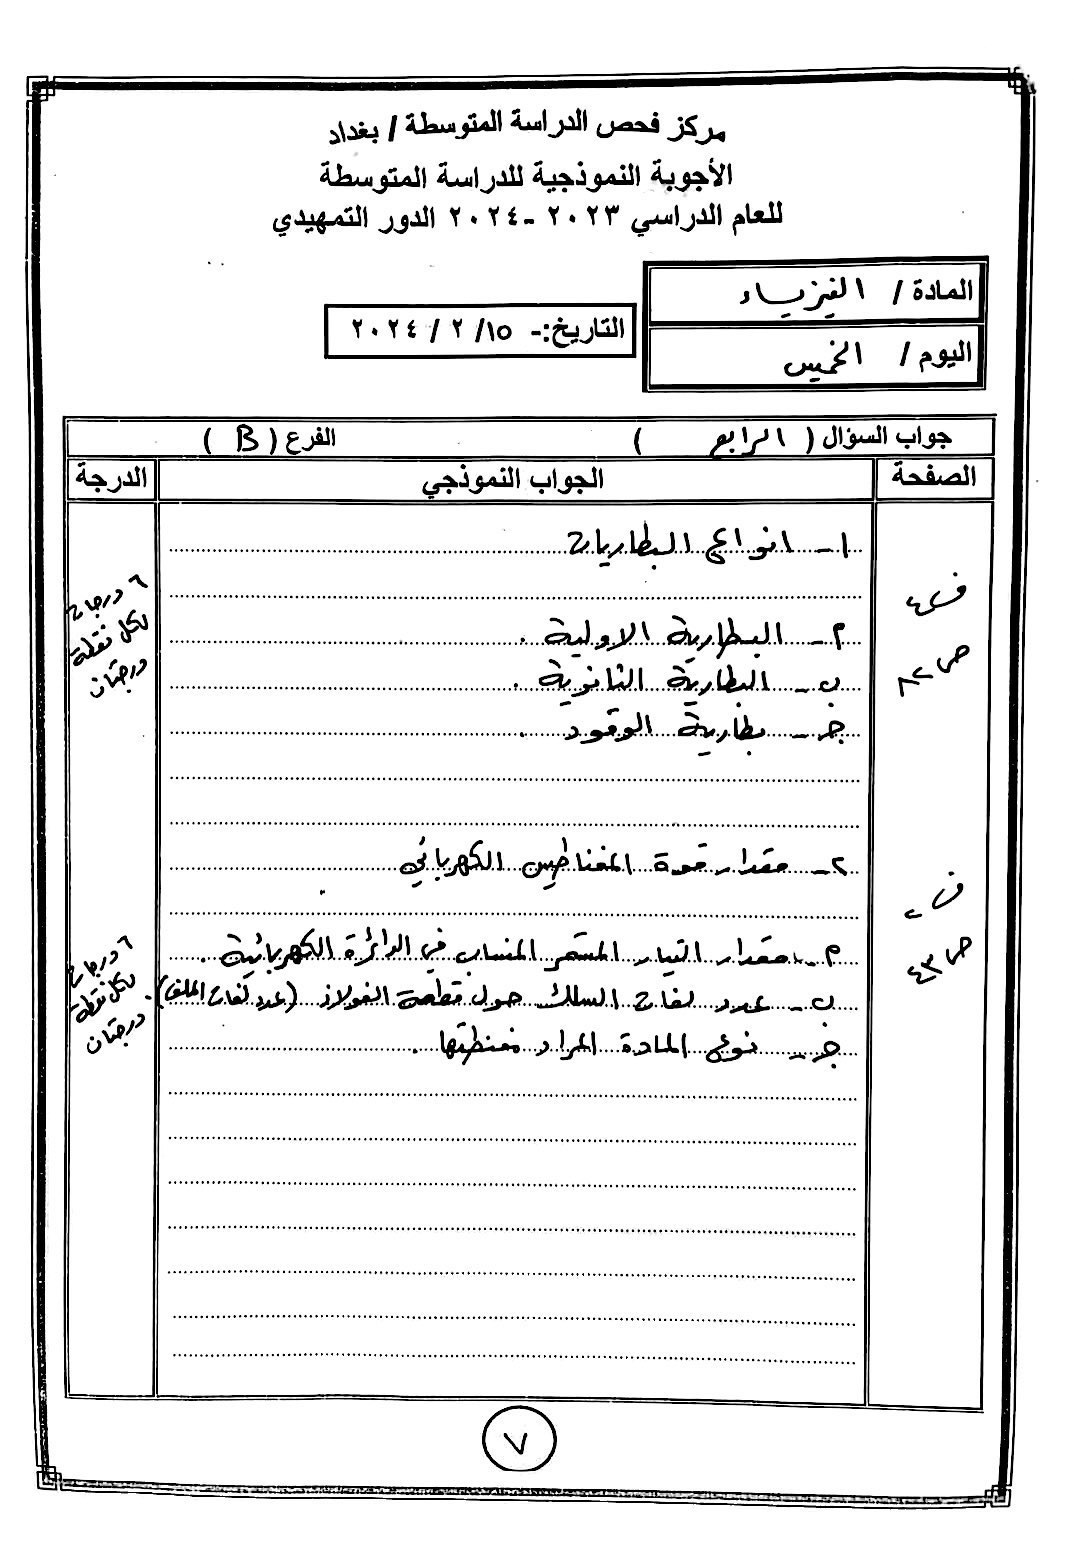 مركز فحص الدراسة المتوسطة / بغداد
الأجوبة النموذجية للدراسة المتوسطة
للعام الدراسي ٢٠٢٣ -٢٠٢٤ الدور التمهيدي
المادة / الفيزياء
اليوم / الخميس
التاريخ:- ١٥/ ٢ / ٢٠٢٤
جواب السؤال ( الرابع ) الفرع ( B )
الصفحة الجواب النموذجي الدرجة
١- انواع البطاريات
ف٤
ص٨٢
٦ درجات
لكل نقطة
درجتان
أ- البطارية الاولية .
ب- البطارية الثانوية .
جـ- بطارية الوقود .
٢- مقدار قوة المغناطيس الكهربائي
ف٢
ص٤٣
٦ درجات
لكل نقطة
درجتان
أ- مقدار التيار المستمر المنساب في الدائرة الكهربائية .
ب- عدد لفات السلك حول قطعة الفولاذ (عدد لفات الملف) .
جـ- نوع المادة المراد مغنطتها .
٧